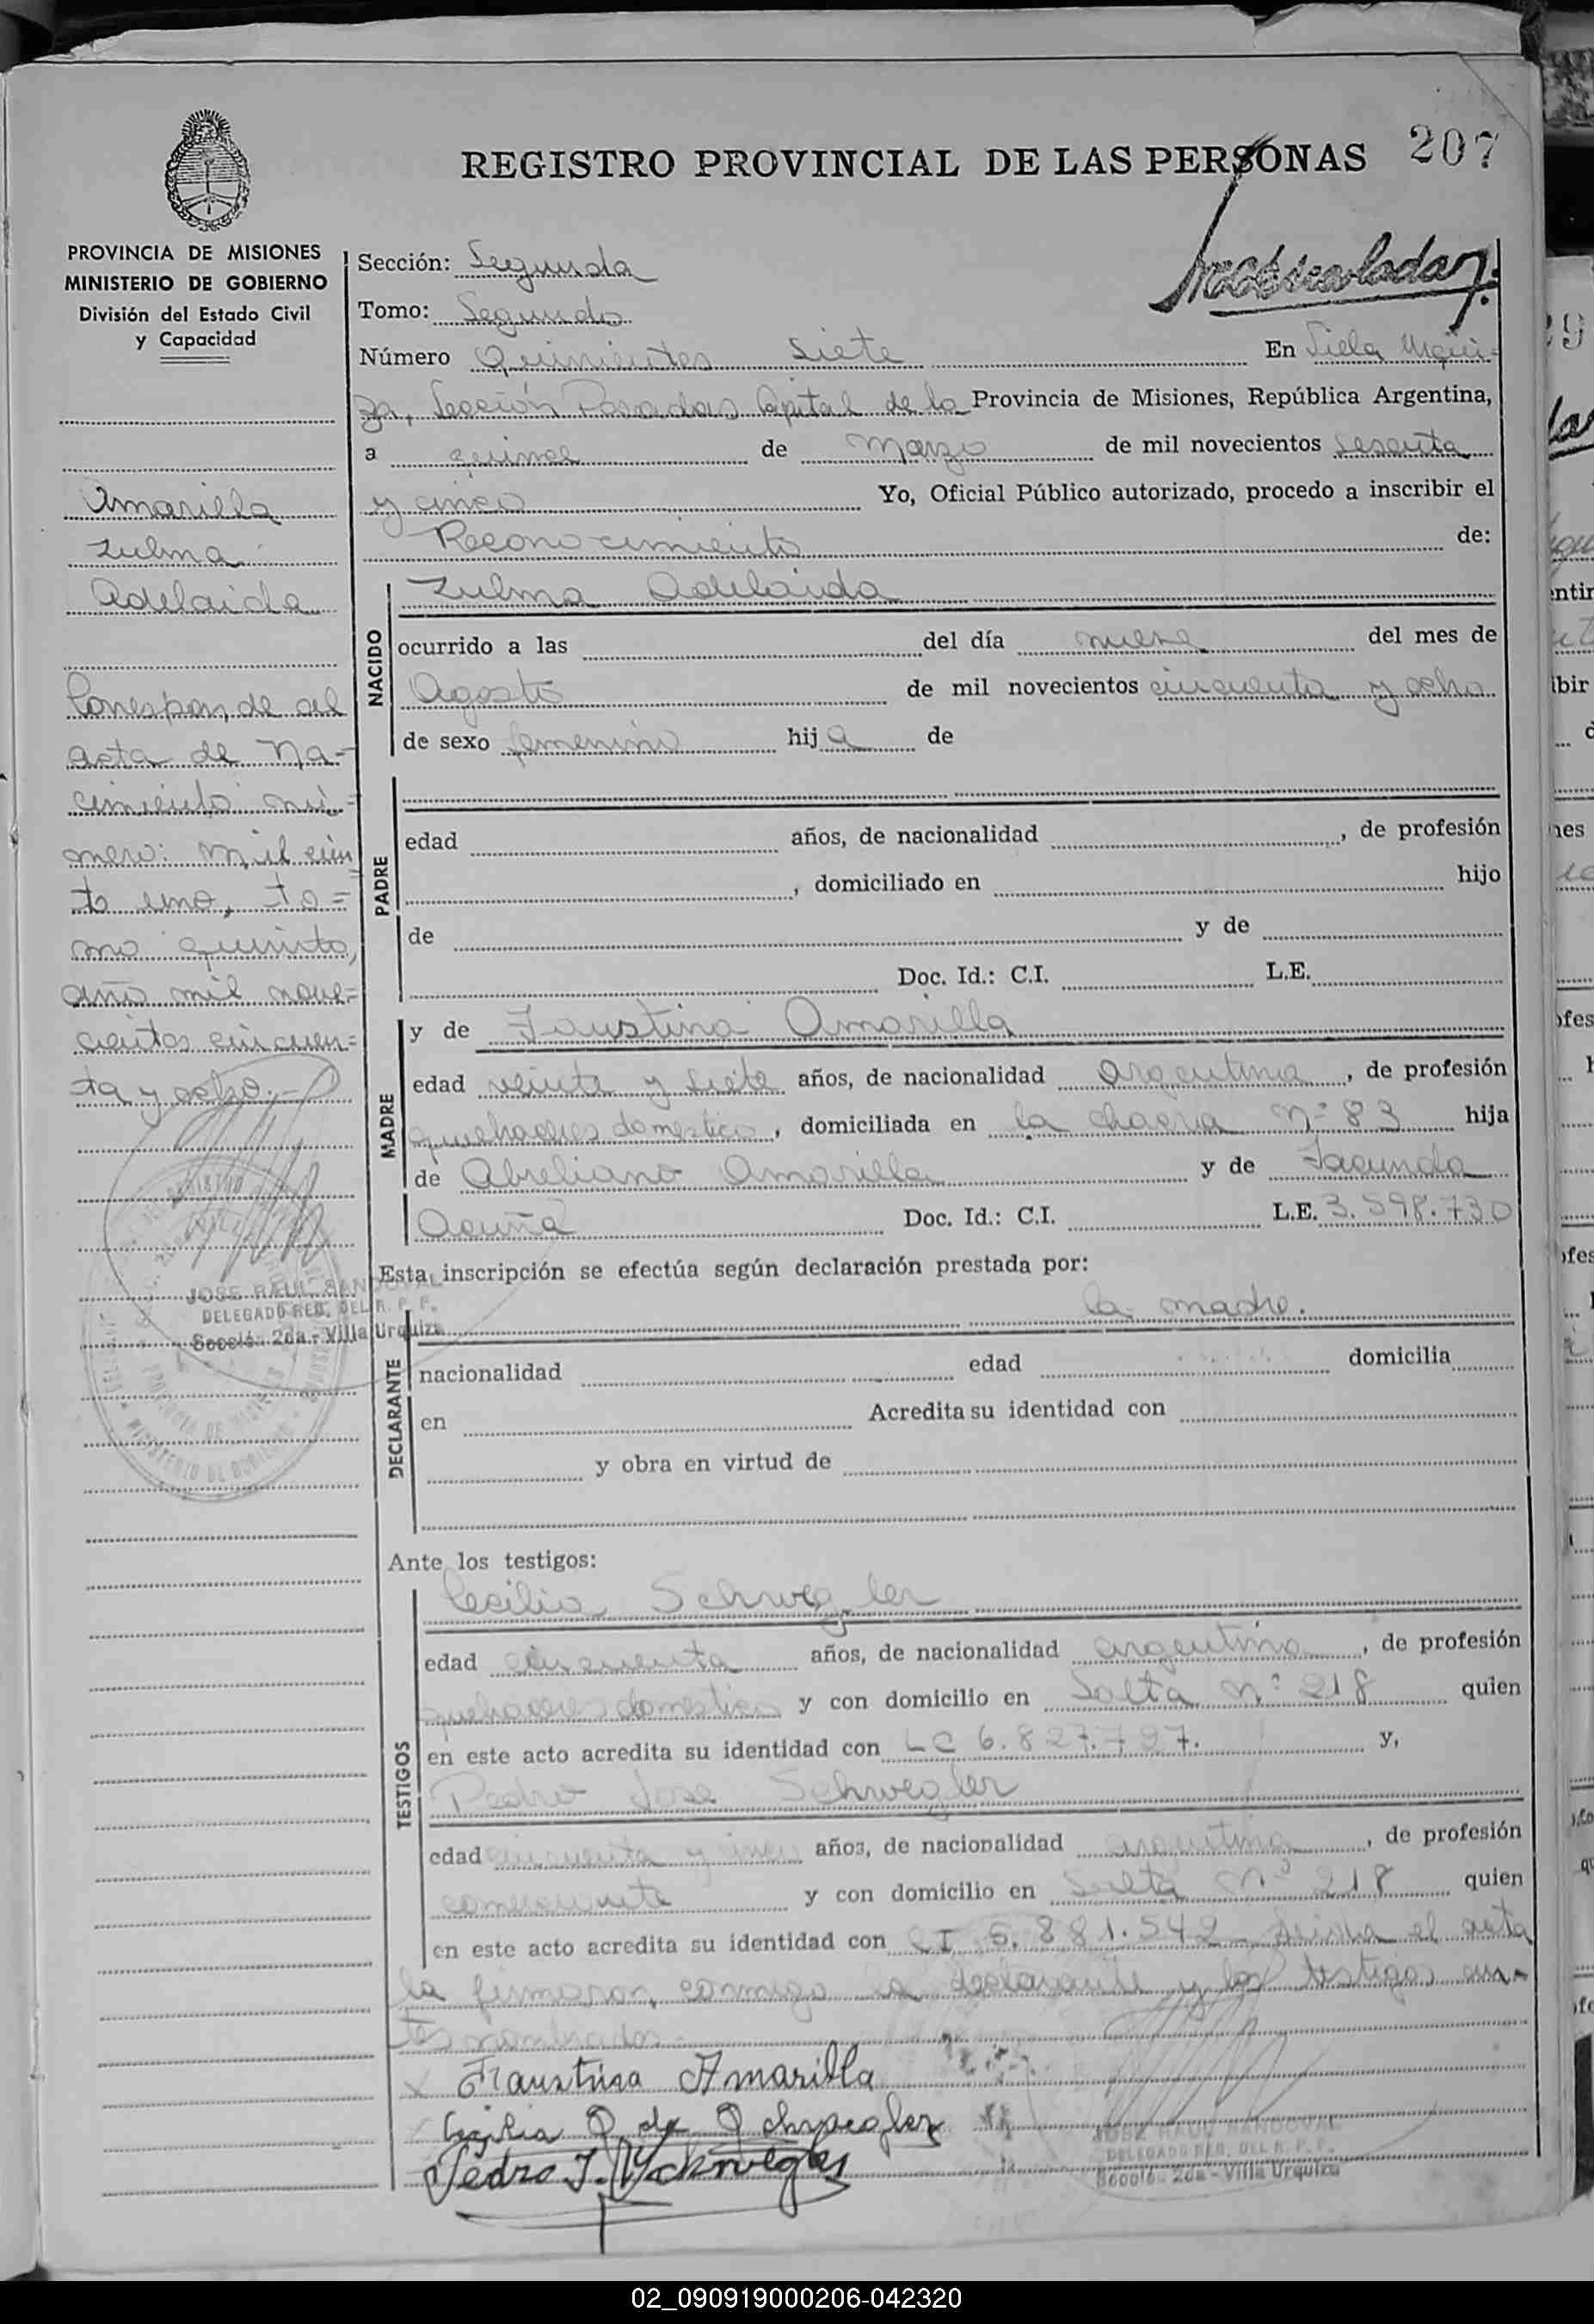 REGISTRO PROVINCIAL DE LAS PERSONAS 207
PROVINCIA DE MISIONES
MINISTERIO DE GOBIERNO
División del Estado Civil
y Capacidad
Amarilla
Zulma
Adelaida
Correspon,de al
acta de Na-
cimiento nú=
mero: Mil cien
to uno, to=
mo quinto,
año mil nove=
cientos cincuen=
ta y ocho.-
JOSE RAUL SANDOVAL
DELEGADO REG. DEL R. P. P.
Sección 2da - Villa Urquiza
Sección: Segunda
Tomo: Segundo
Número Quinientos Siete En Villa Urqui=
za, Sección Posadas Capital de la Provincia de Misiones, República Argentina,
a quince de Marzo de mil novecientos sesenta
y cinco Yo, Oficial Público autorizado, procedo a inscribir el
Reconocimiento de:
NACIDO
Zulma Adelaida
ocurrido a las del día nueve del mes de
Agosto de mil novecientos cincuenta y ocho
de sexo femenino hija de
PADRE
edad años, de nacionalidad , de profesión
, domiciliado en hijo
de y de
Doc. Id.: C.I. L.E.
MADRE
y de Faustina Amarilla
edad veinte y siete años, de nacionalidad argentina, de profesión
quehaceres domestico, domiciliada en la chacra Nº 83 hija
de Abreliano Amarilla y de Facunda
Acuña Doc. Id.: C.I. L.E. 3.598.730
Esta inscripción se efectúa según declaración prestada por:
la madre.
DECLARANTE
nacionalidad edad domicilia
en Acredita su identidad con
y obra en virtud de
Ante los testigos:
TESTIGOS
Cecilia Schwegler
edad cincuenta años, de nacionalidad argentina, de profesión
quehaceres domestico y con domicilio en Salta Nº 218 quien
en este acto acredita su identidad con LC 6.827.797. y,
Pedro Jose Schwegler
edad cincuenta y cinco años, de nacionalidad argentina, de profesión
comerciante y con domicilio en Salta Nº 218 quien
en este acto acredita su identidad con CI 5.881.542 el acta
la firmaron conmigo la declarante y los testigos an-
tes nombrados.-
Faustina Amarilla
Cecilia S de Schwegler
Pedro J. Schwegler
JOSE RAUL SANDOVAL
DELEGADO REG. DEL R. P. P.
Sección 2da - Villa Urquiza
02_090919000206-042320